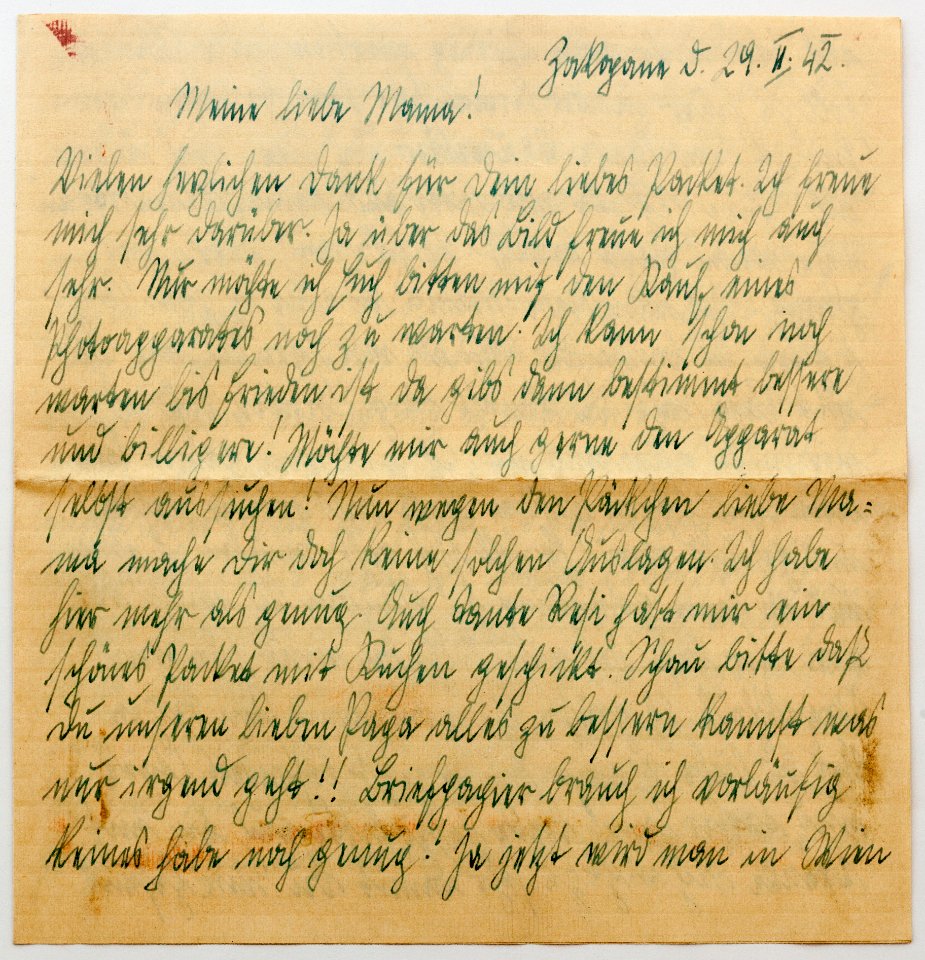 Zakopane d. 29. II. 42.
Meine liebe Mama!
Vielen herzlichen Dank für Dein liebes Packet. Ich freue
mich sehr darüber. Ja über das Bild freue ich mich auch
sehr. Nur möchte ich Euch bitten mit den Kauf eines
Photoapparates noch zu warten. Ich kann schon noch
warten bis Frieden ist da gibs dann bestimmt bessere
und billigere! Möchte mir auch gerne den Apparat
selbst aussuchen! Nun wegen den Päckchen liebe Ma=
ma mache Dir doch keine solchen Auslagen. Ich habe
hier mehr als genug. Auch Tante Resi hatt mir ein
schönes Packet mit Kuchen geschickt. Schau bitte daß
Du unseren lieben Papa alles zu bessern kannst was
nur irgend geht!! Briefpapier brauch ich vorläufig
keines habe noch genug! Ja jetzt wird man in Wien